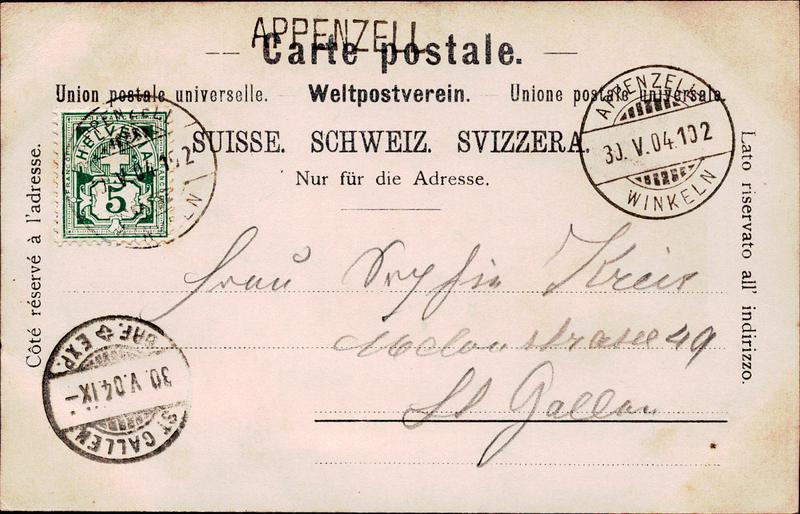 APPENZELL
Carte postale.
Union postale universelle. — Weltpostverein. — Unione postale universale.
SUISSE. SCHWEIZ. SVIZZERA.
Nur für die Adresse.
Côté réservé à l'adresse.
Lato riservato all' indirizzo.
HELVETIA
FRANCO
5
APPENZELL
V.04.102
APPENZELL
30.V.04.102
WINKELN
Frau Sophie Kreis
49
St Gallen
BRF. EXP.
30.V.04.IX-
ST. GALLEN